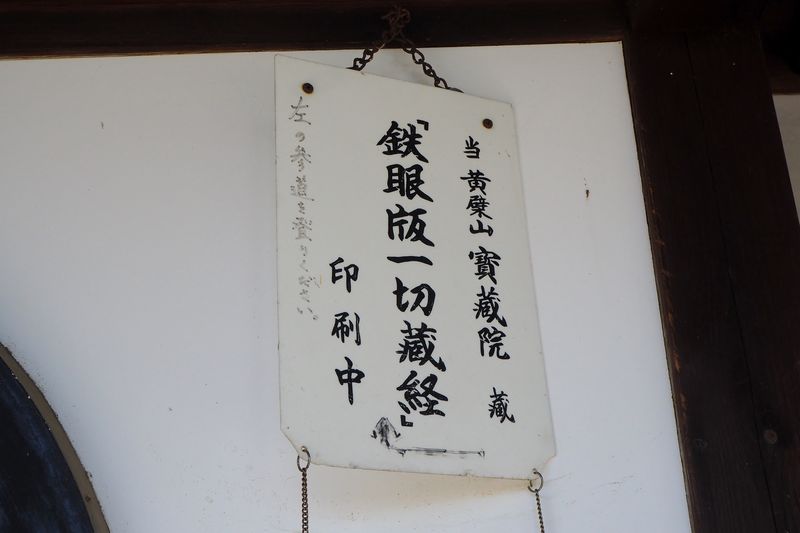 当 黄檗山 寳蔵院 蔵
「鉄眼版一切蔵経」
印刷中
左の参道を登りください。